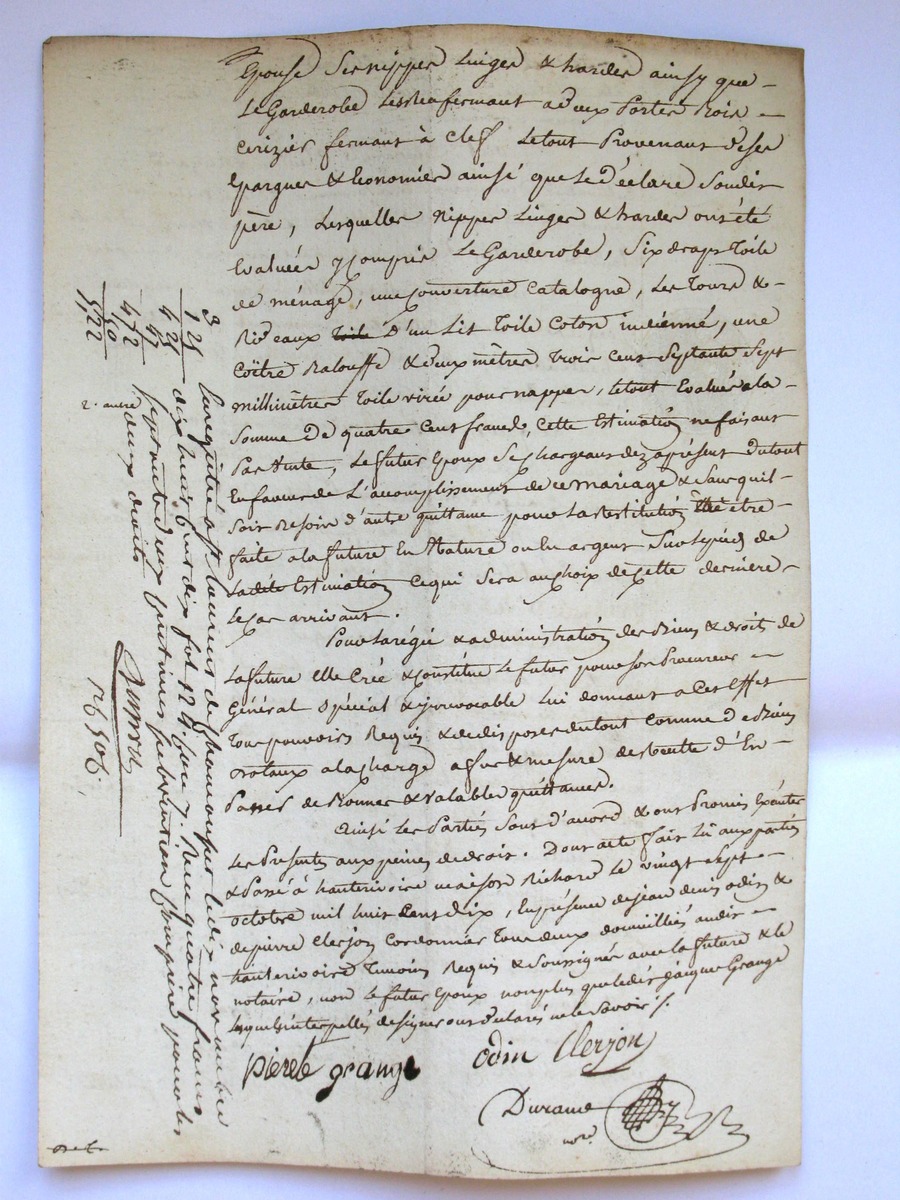 Epouse Ses nippes Linges & hardes ainsy que
Le Garderobe Les Renfermant a Deux Portes Bois
Cerizier fermant à Clef Le tout Provenant De ses
Epargnes & Economies ainsi que Le Déclare Son dit
père, Lesquelles Nippes Linges & hardes ont été
Evaluées y Compris Le Garderobe, Six draps Toile
de ménage, une Couverture Catalogne, Les Tours &
Rideaux D'un Lit Toile Coton indienne, une
Coëtre Baloufle & Deux mètres Trois Cent Septante Sept
millimètres Toile virée pour nappes, le tout Evalué a la
Somme De quatre Cent francs, Cette Estimation ne faisant
Pas Vente, Le futur Epoux Se Chargeant dez à présent du tout
En faveur de L'accomplissement de Ce mariage & Sans quil
Soit Besoin d'autre quittance pour La Restitution être
faite a la future En Nature ou En argent Sur Le pied de
La dite Estimation Ce qui Sera au Choix de Cette derniere
Le Cas arrivant.
Pour La régie & administration des Biens & droits de
La future Elle Crée & Constitue Le futur pour Son Procureur
Général Spécial & irrevocable Lui donnant a Cet Effet
Tous pouvoirs Requis & de disposer du tout Comme De Biens
Dotaux a la Charge a fur & mesure des Recette d'En
Passer de Bonnes & Valables quittances.
Ainsi Les Parties Sont d'accord & ont Promis Exécuter
Les Presentes aux peines de droit. Dont acte fait Lû aux parties
& Passé à hauterivoire maison Richard Le vingt Sept
octobre mil huit Cent Dix, En présence de jean denis odin &
de pierre Clerjon Cordonnier Tous deux domiciliés audit
hauterivoire Témoins Requis & Soussignés avec la future & le
notaire, non Le futur Epoux non plus que le dit jacque Grange
Lesquels interpellés de signer ont Déclarés ne le Savoir /.
Pierete grange
odin Clerjon
Durand
nore.
Enregistré a St Laurent de Chamousset le dix novembre
dix huit Cent dix fol 124 Case 7 Reçu quatre francs
septante deux centimes subvention comprise pour les
deux droits
3
1 25
4 25
47
4 72
50
5 22